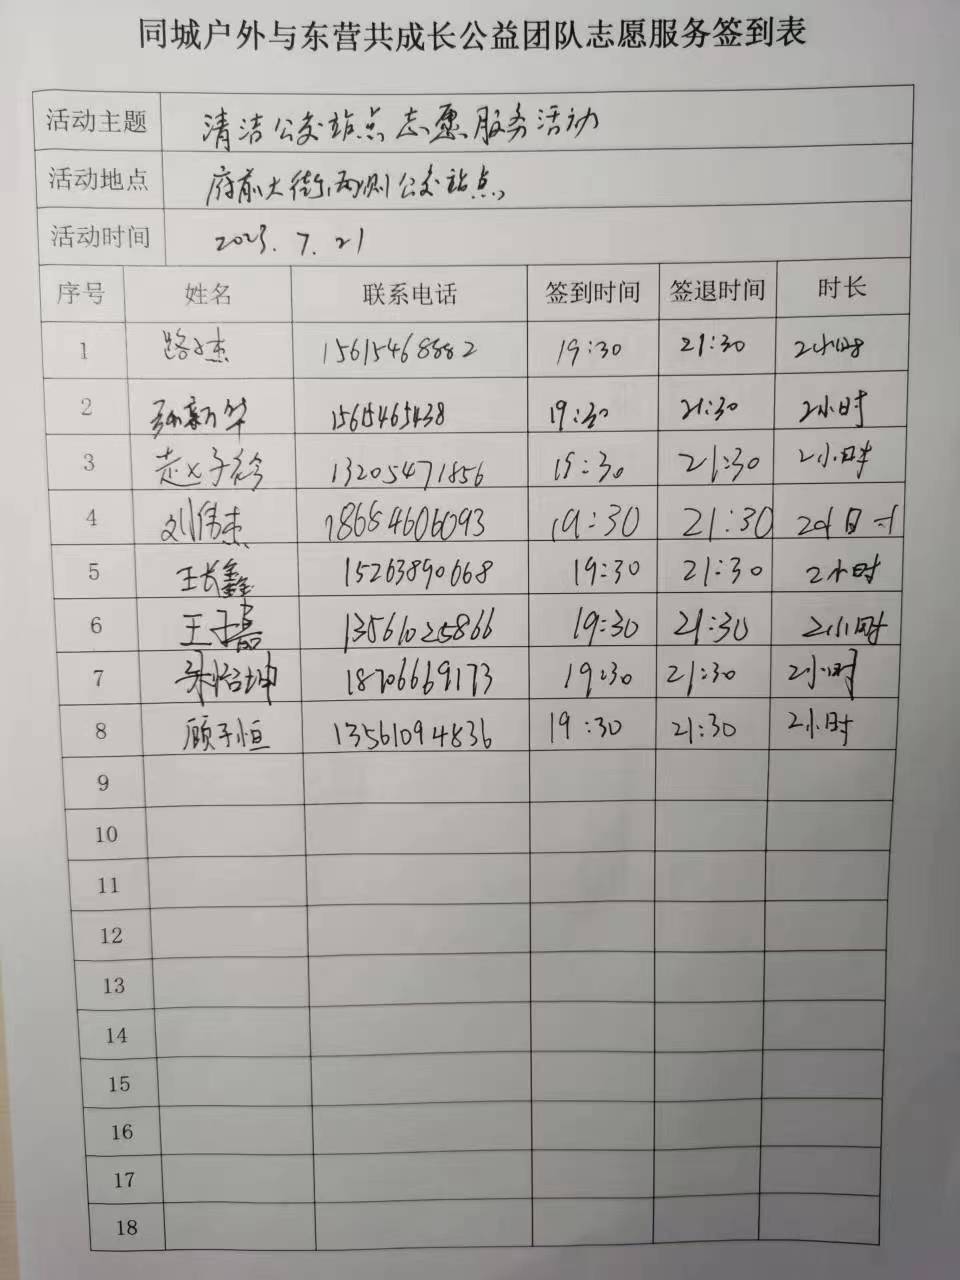 同城户外与东营共成长公益团队志愿服务签到表
活动主题 清洁公交站点志愿服务活动
活动地点 府前大街两侧公交站点
活动时间 2023.7.21
序号 姓名 联系电话 签到时间 签退时间 时长
1 路子杰 15615468882 19:30 21:30 2小时
2 孙新华 1565465438 19:30 21:30 2小时
3 赵子 13205471856 19:30 21:30 2小时
4 刘伟杰 18684606093 19:30 21:30 2小时
5 王长鑫 15263890668 19:30 21:30 2小时
6 王子嘉 13561025866 19:30 21:30 2小时
7 朱怡坤 18706669173 19:30 21:30 2小时
8 顾子恒 13561094836 19:30 21:30 2小时
9
10
11
12
13
14
15
16
17
18